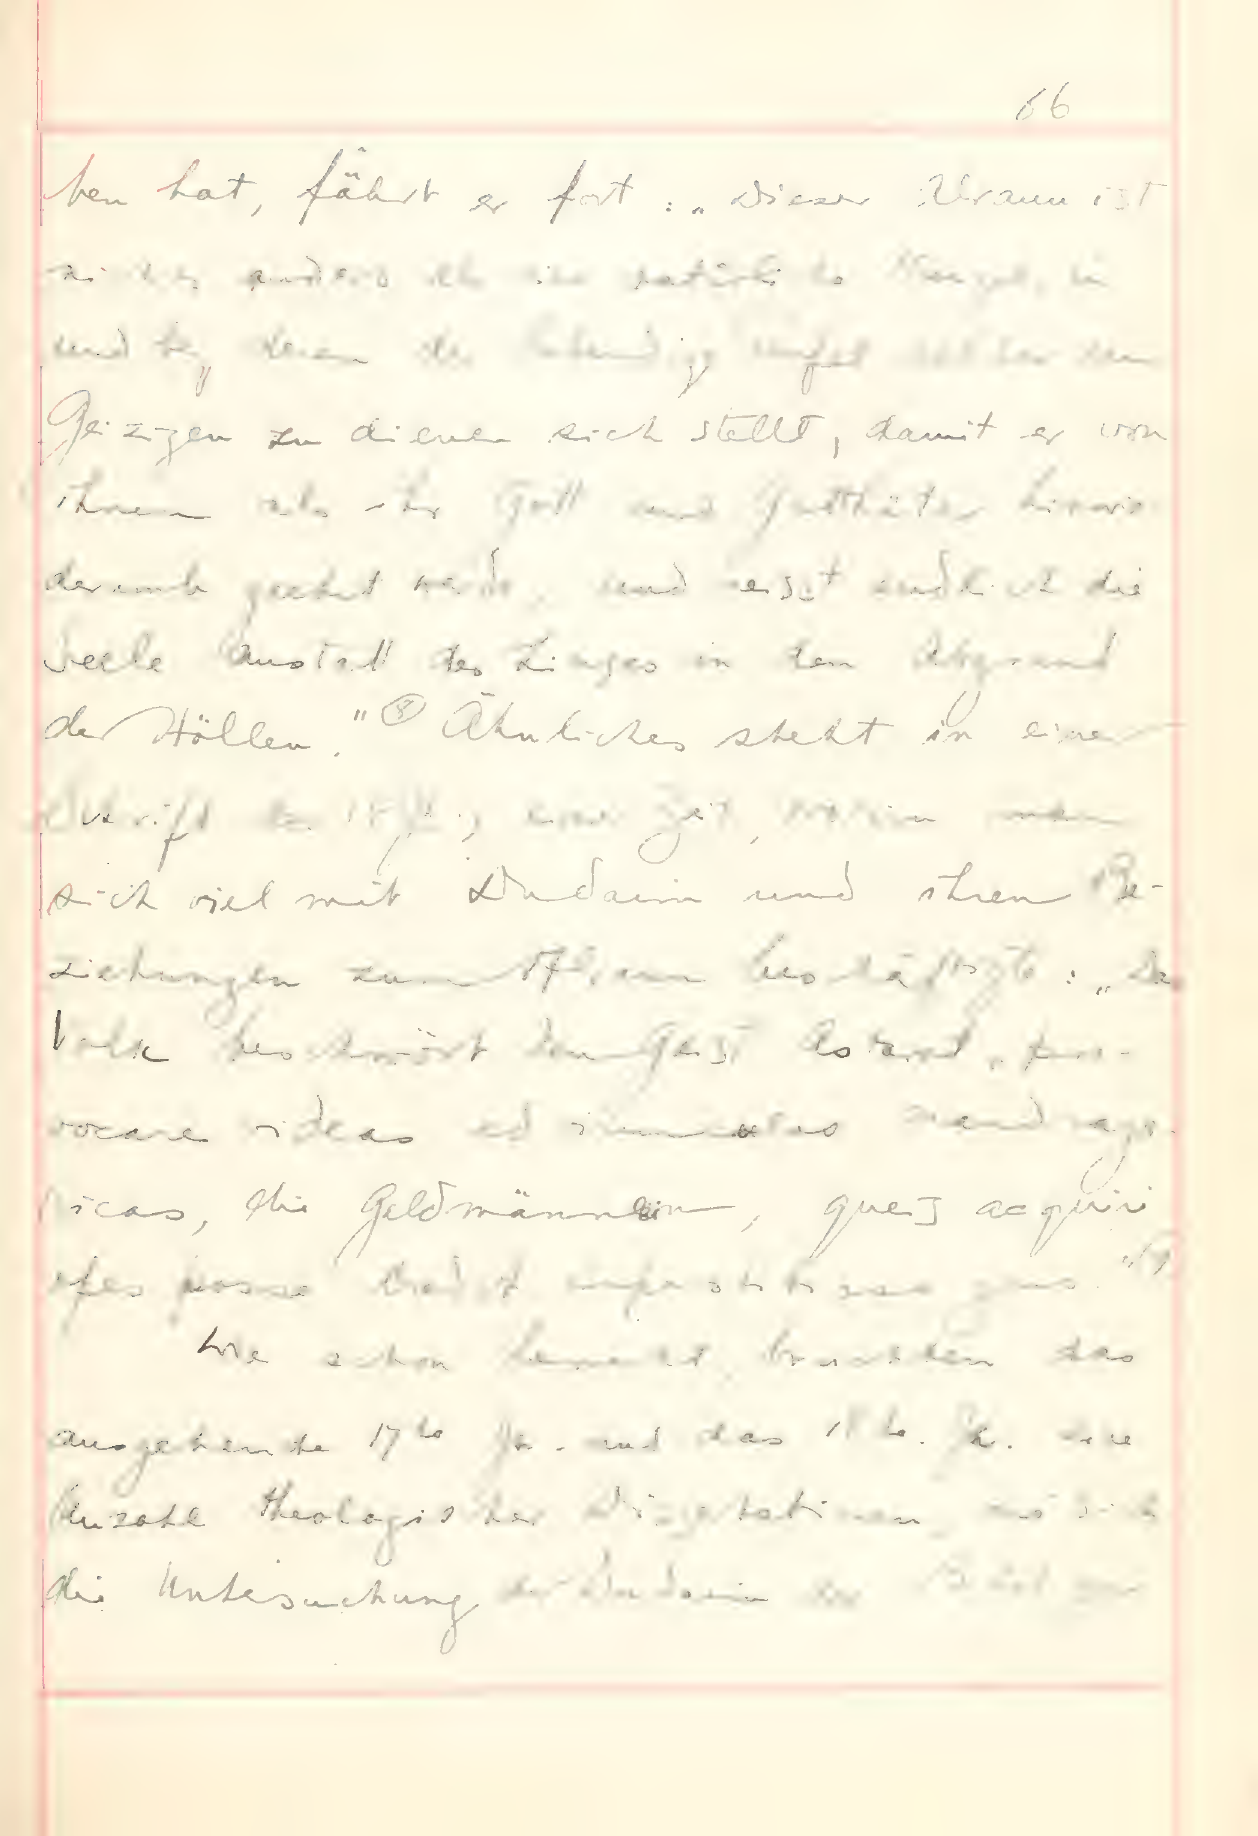 66
ben hat, fährt er fort: „Dieser Alraun ist
nichts anders als eine natürliche Wurzel, in
und bey deren der lebendige Teufel selber den
Geizigen zu dienen sich stellt, damit er von
ihnen als ihr Gott und Gutthäter hinwie-
derumb geehrt werde, und reisst endlich die
Seele anstatt des Zinses in den Abgrund
der Höllen." (8) Ähnliches steht in einer
Schrift des 18 Jh., einer Zeit, worin man
sich viel mit Dudaim und ihren Be-
ziehungen zum Alraun beschäftigte: „Das
Volk beschwört den Geist
vocare ideas ad mandrago-
ricas, die Geldmännlein, queis acquiri
opes posse credit
Wie schon bemerkt, brachten das
ausgehende 17te Jh. und das 18te Jh. eine
Anzahl theologischer Dissertationen, wo sich
die Untersuchung der Dudaim der Bibel zur